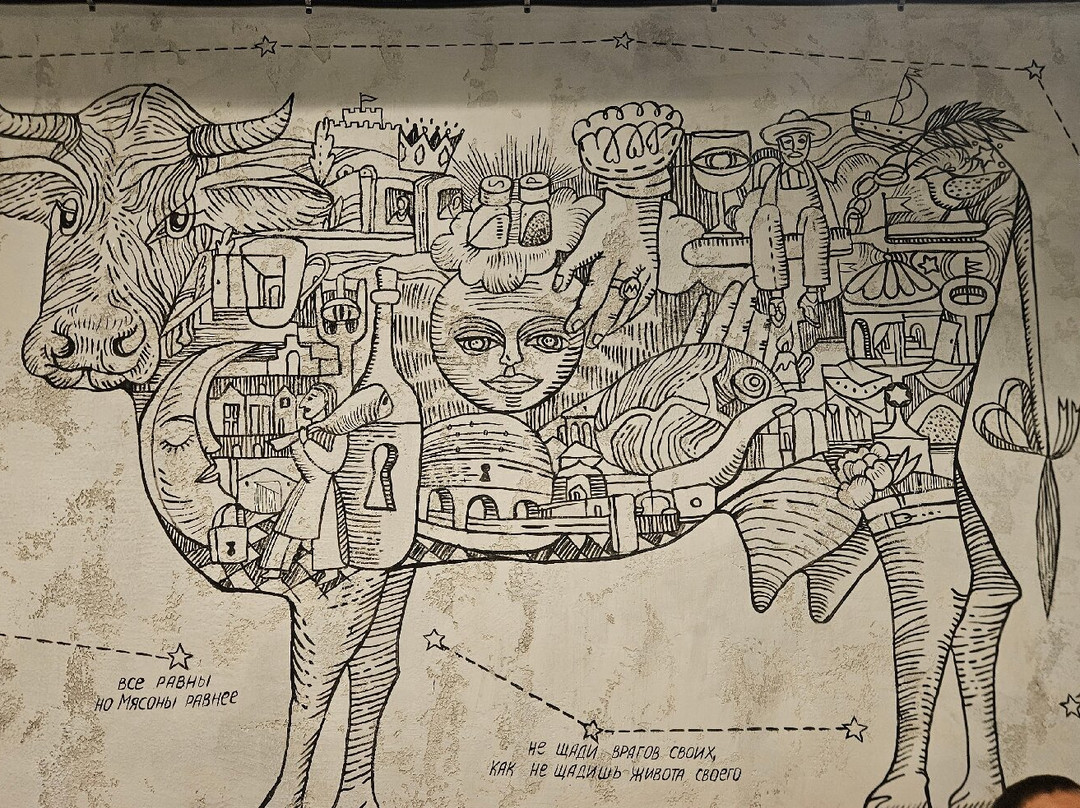 ВСЕ РАВНЫ
НО МЯСОНЫ РАВНЕЕ
НЕ ЩАДИ ВРАГОВ СВОИХ,
КАК НЕ ЩАДИШЬ ЖИВОТА СВОЕГО